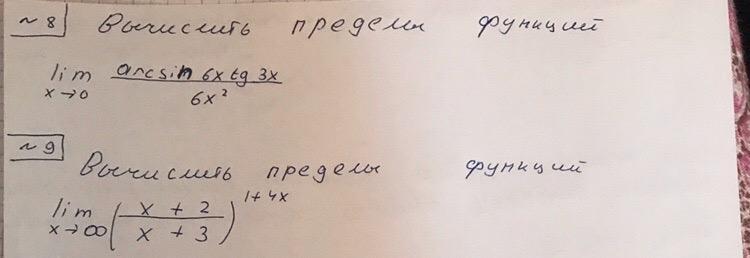 № 8 Вычислить пределы функций
lim arcsin 6x tg 3x
x → 0 6x²
№ 9
Вычислить пределы функций
lim ( x + 2 ) 1 + 4x
x → ∞ ( x + 3 )